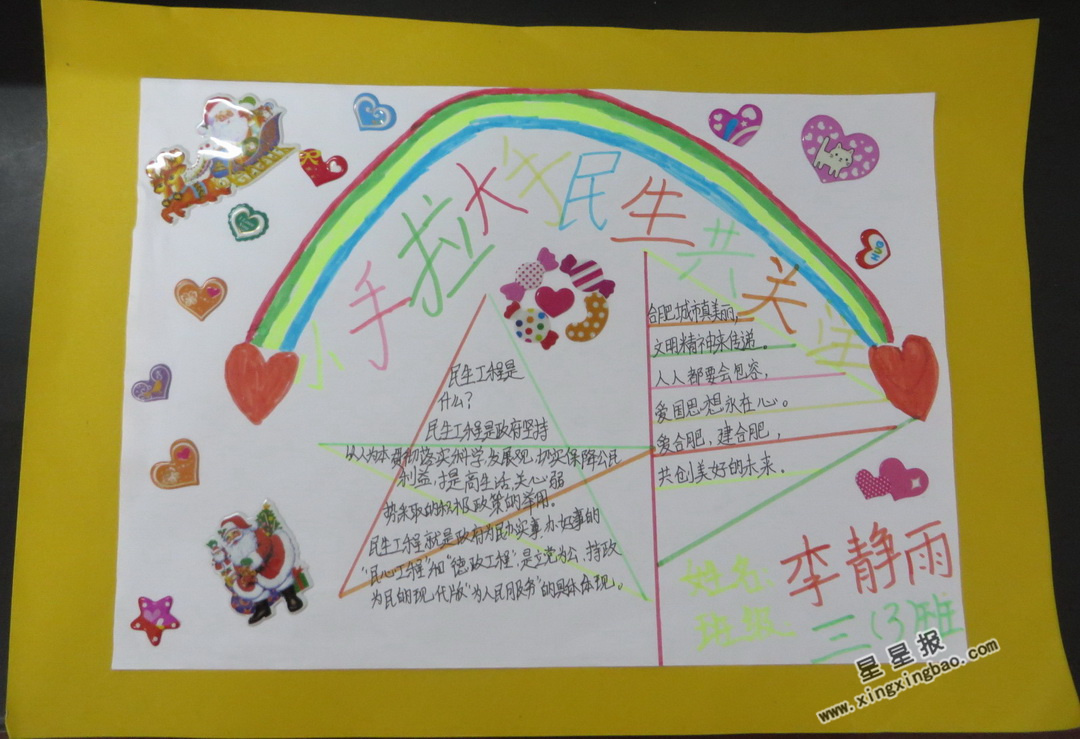 小手拉大手民生共关注
民生工程是
什么?
民生工程是政府坚持
以人为本 落实科学发展观,切实保障公民
利益,提高生活,关心弱
势采取的积极政策的举用。
民生工程就是政府为民办实事,办好事的
“民心工程”和“德政工程”,是立党为公、持政
为民的现代版“为人民服务”的具体体现。
合肥城市真美丽,
文明精神来传递。
人人都要会包容,
爱国思想永在心。
爱合肥,建合肥,
共创美好的未来.
姓名:李静雨
班级:三(3)班
星星报
www.xingxingbao.com